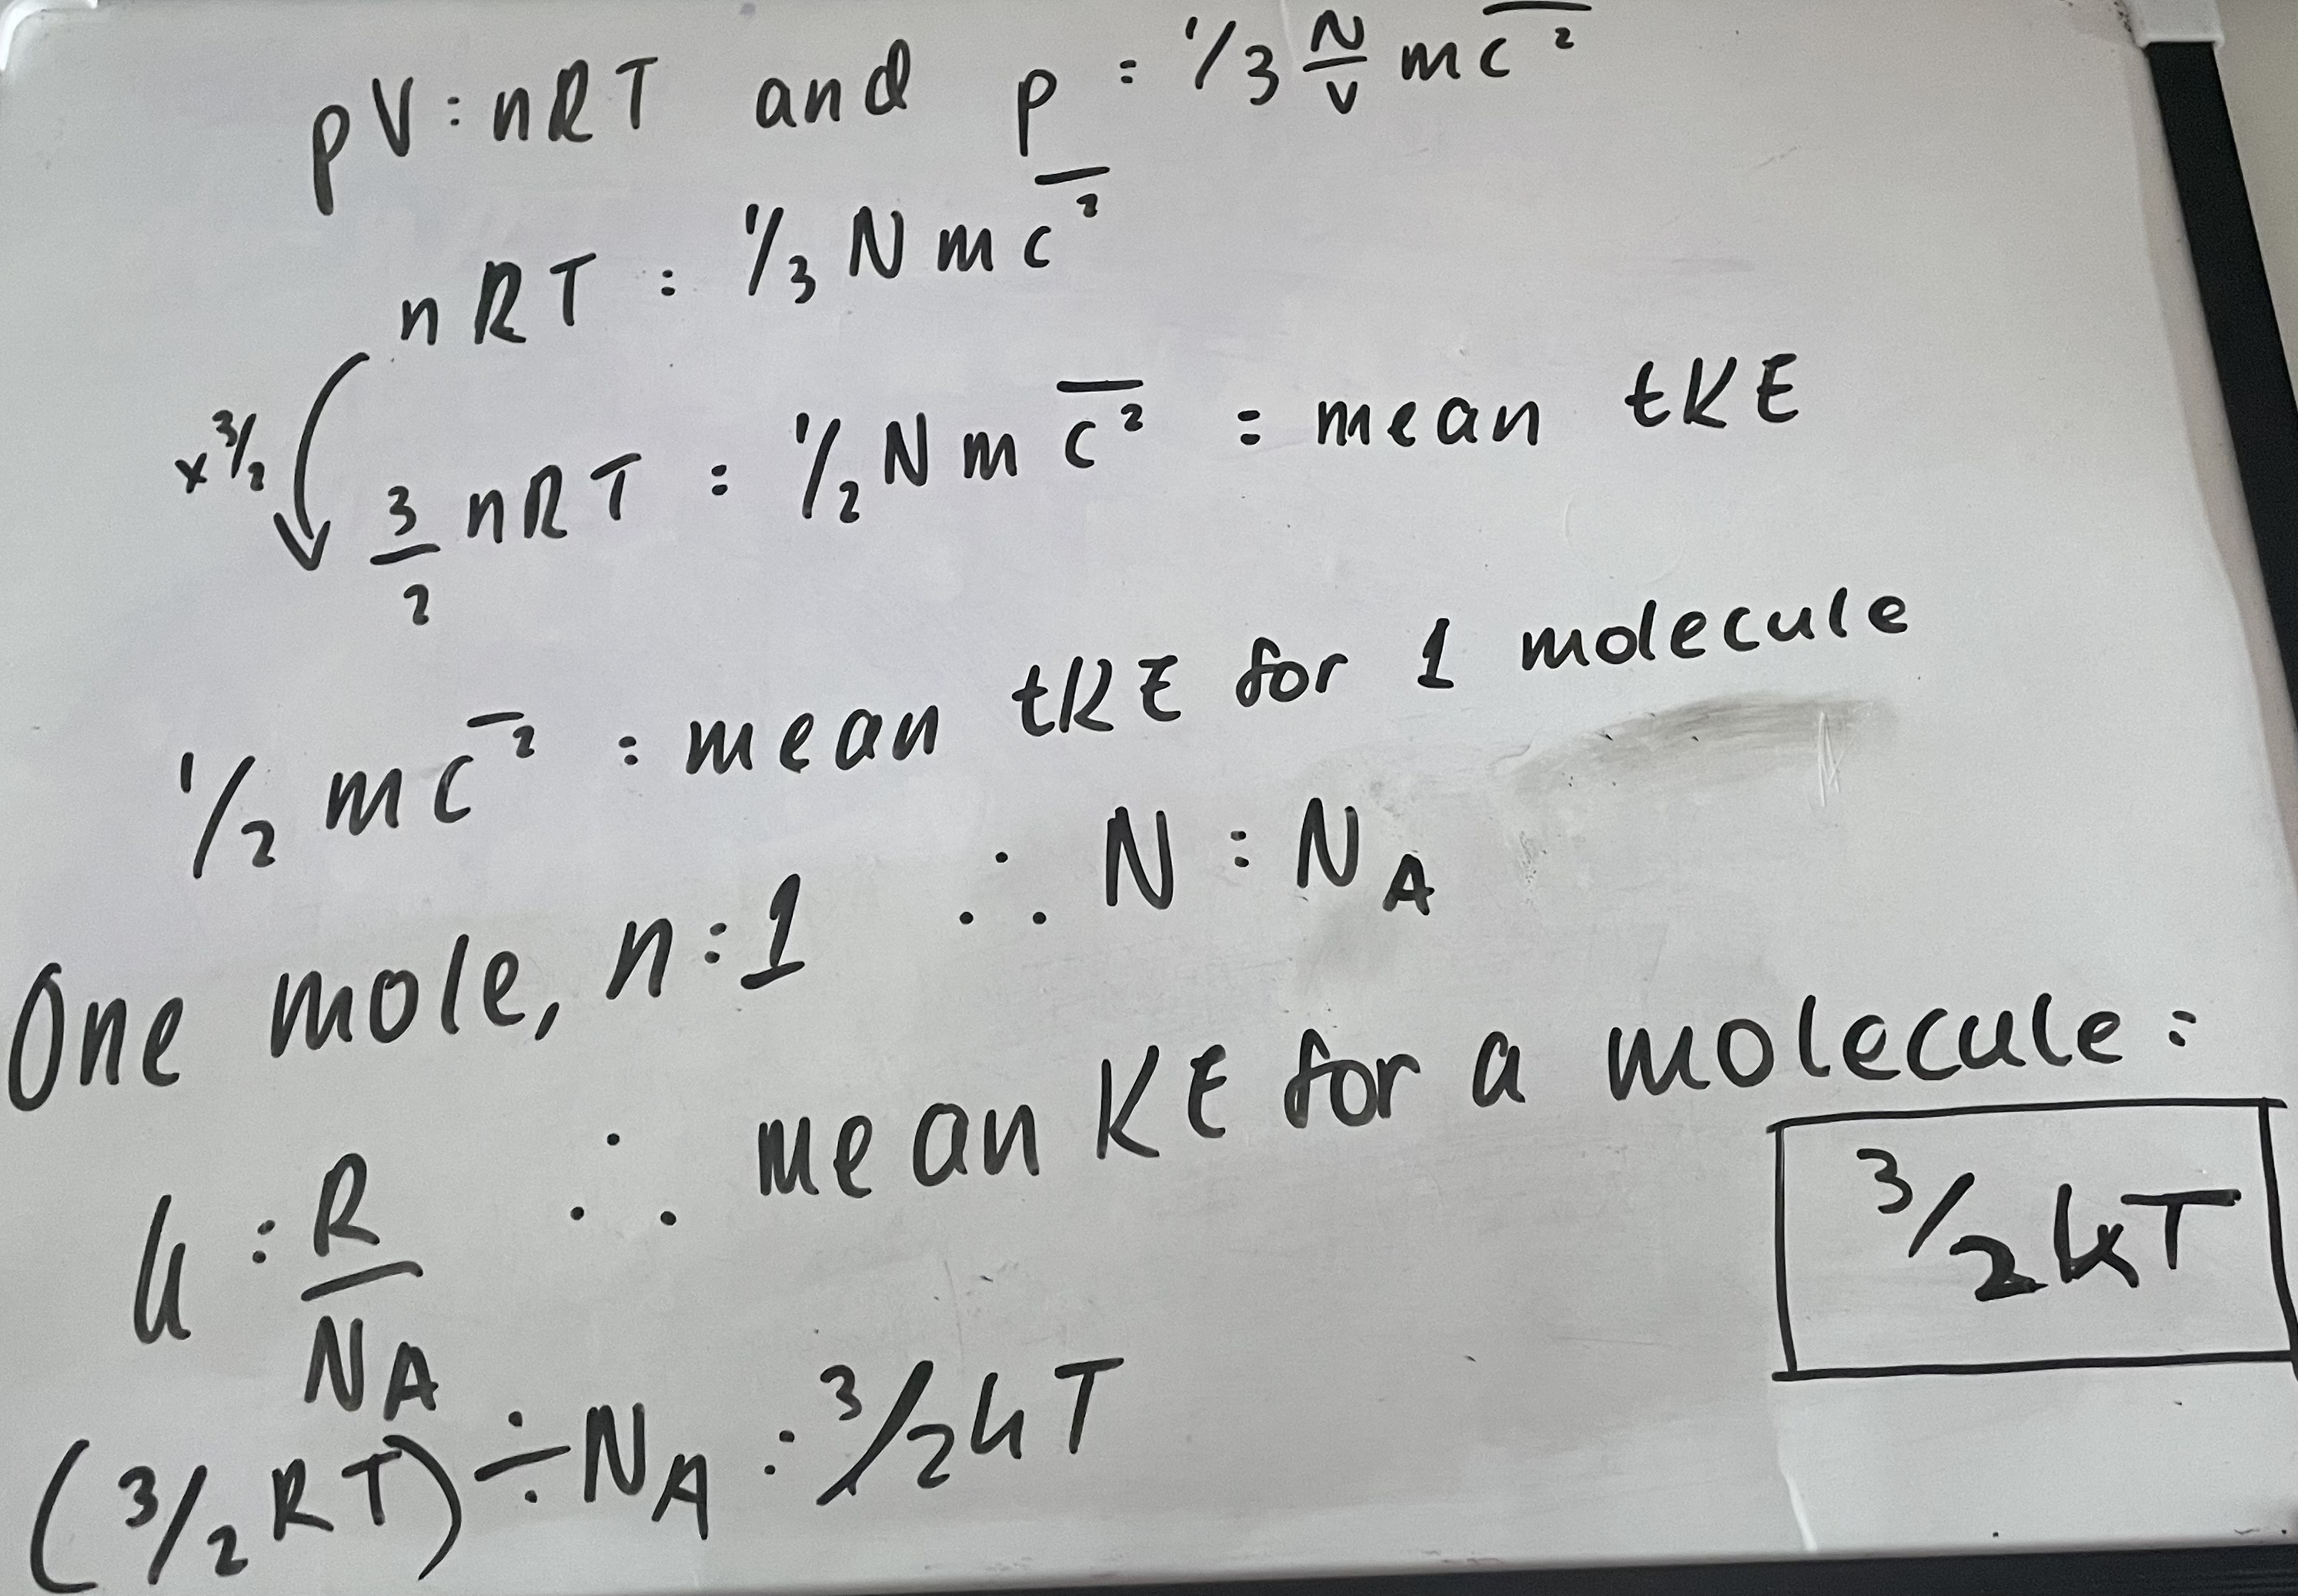 pV = nRT and p = 1/3 N/V mc̅²
nRT = 1/3 Nmc̅²
×3/2
3/2 nRT = 1/2 Nmc̅² = mean tKE
1/2 mc̅² = mean tKE for 1 molecule
One mole, n = 1 ∴ N = N_A
k = R/N_A ∴ mean KE for a molecule =
3/2 kT
(3/2 RT) ÷ N_A = 3/2 kT